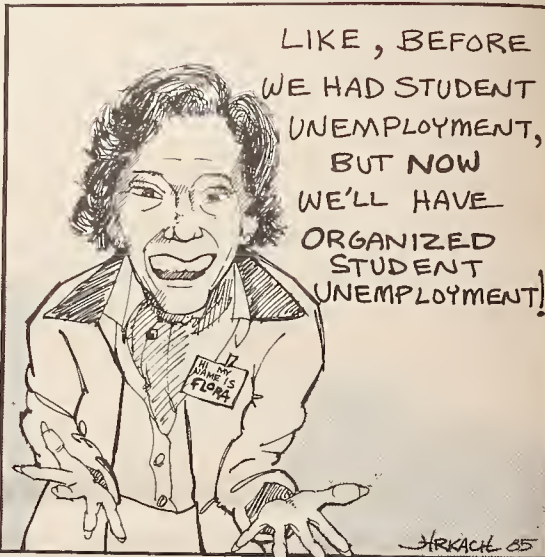 LIKE, BEFORE
WE HAD STUDENT
UNEMPLOYMENT,
BUT NOW
WE'LL HAVE
ORGANIZED
STUDENT
UNEMPLOYMENT!
HI MY
NAME IS
FLORA
HRKACH 85